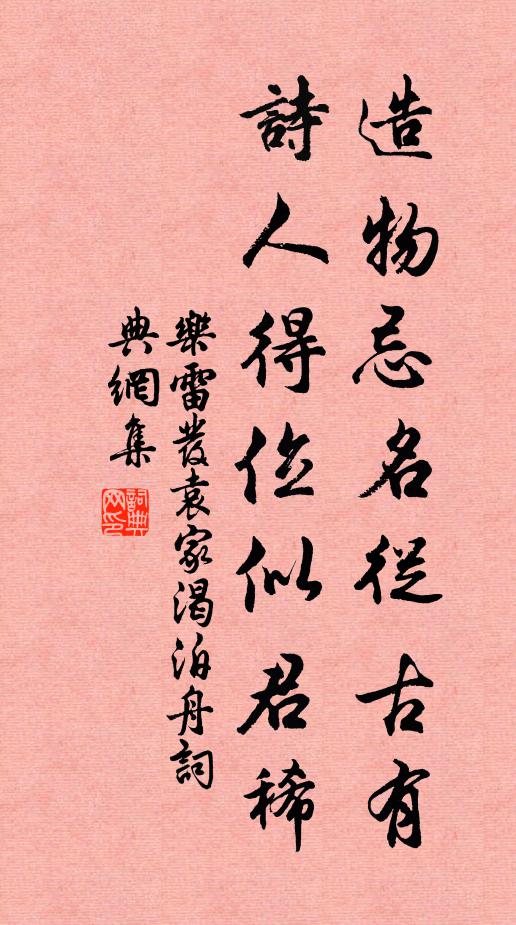 造物忌名從古有
詩人得位似君稀
樂雷發袁家渴泊舟詞
典網集
詞典
网印